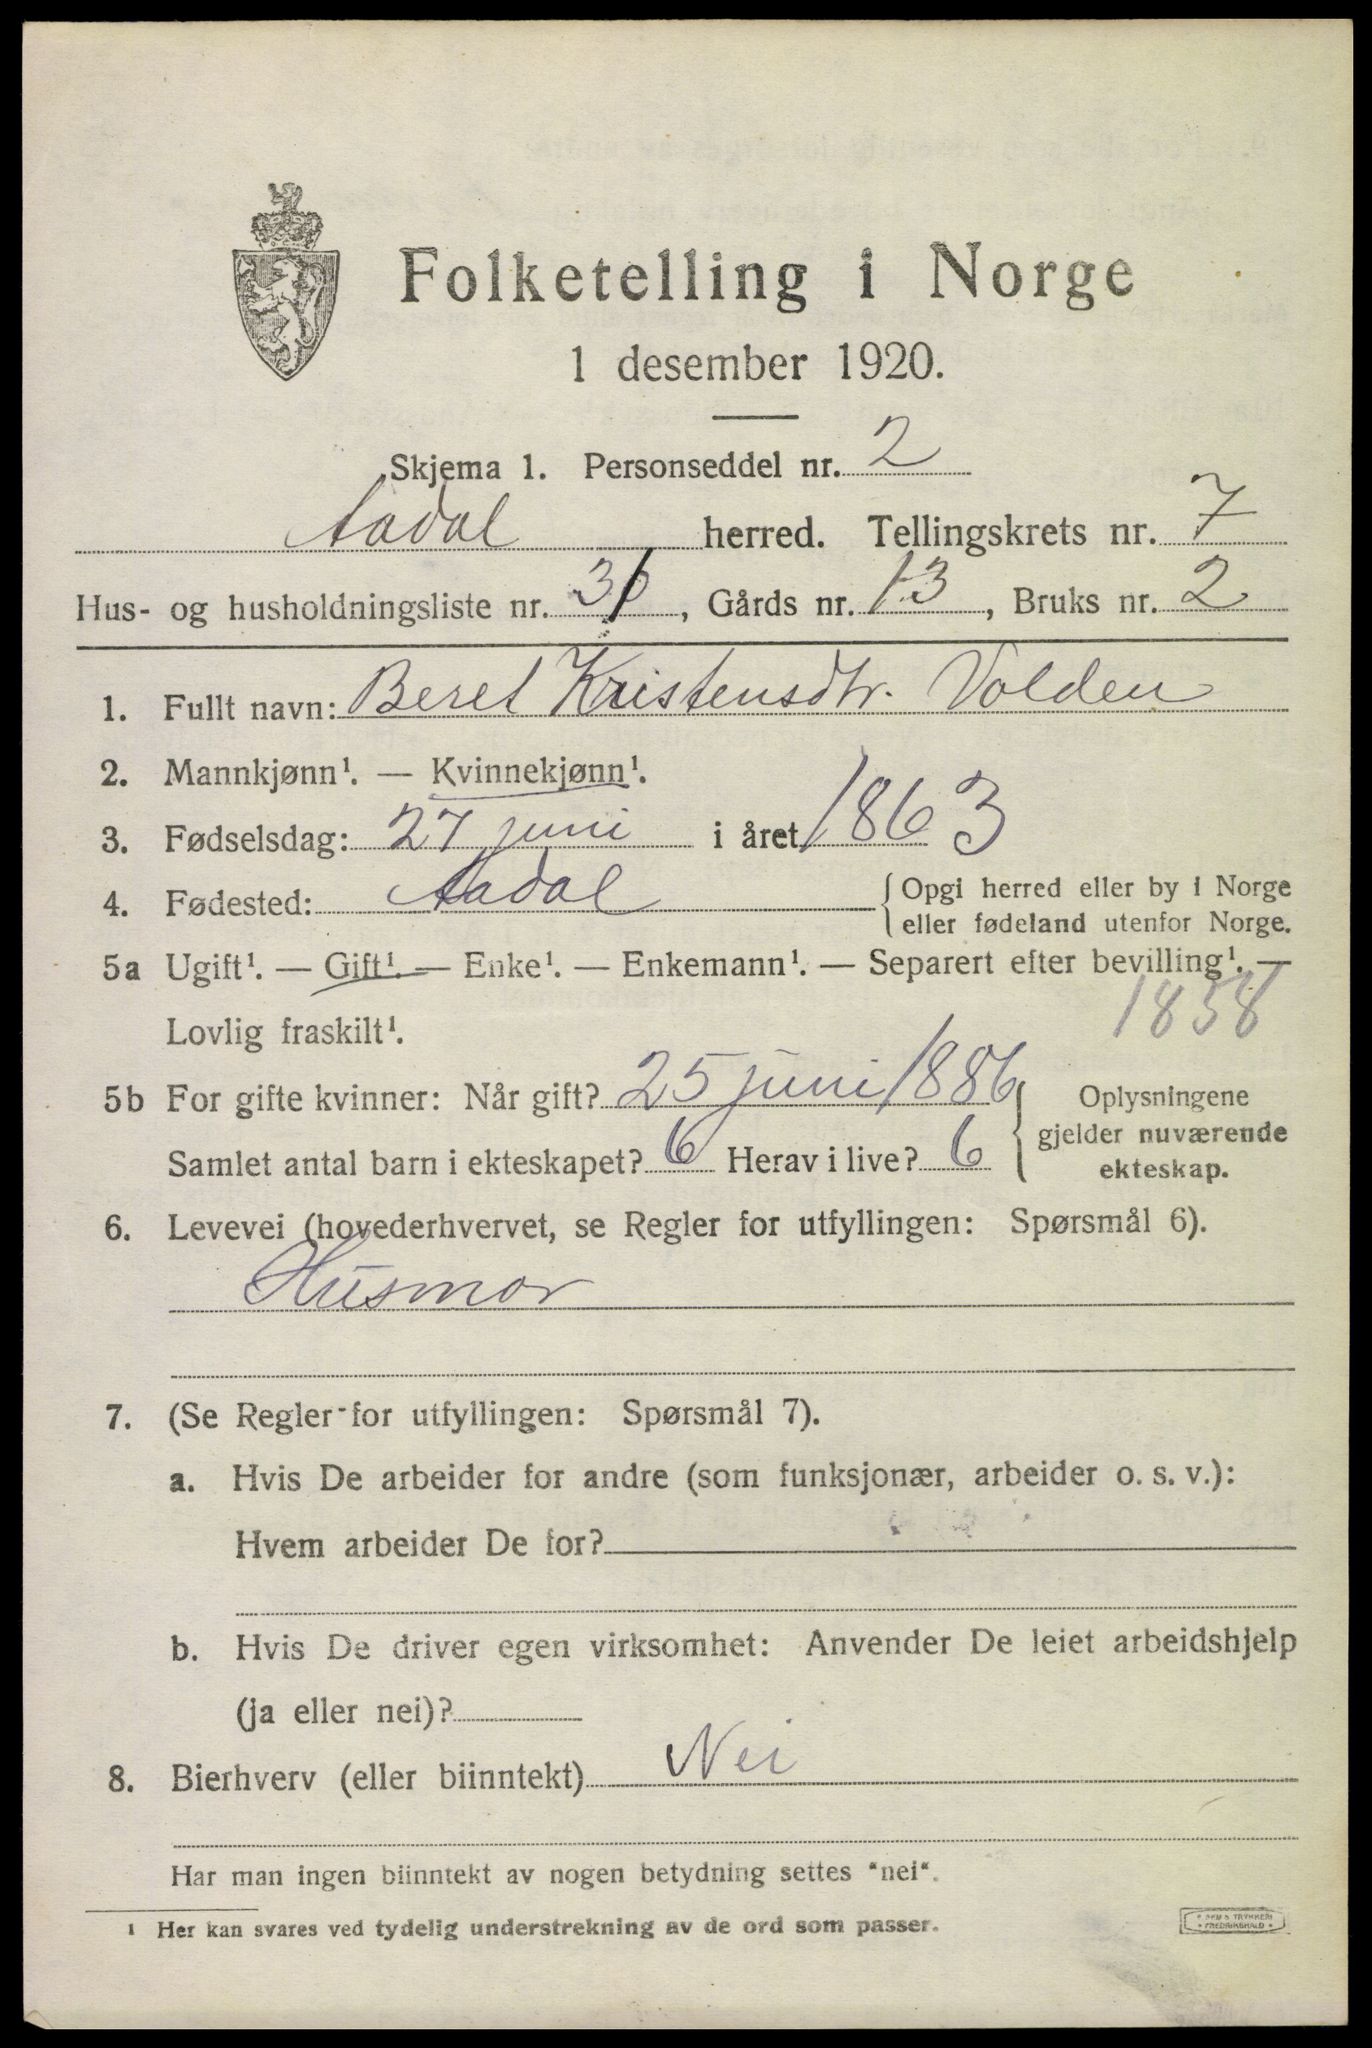 Folketelling i Norge
1 desember 1920.
Skjema 1. Personseddel nr. 2
Aadal herred. Tellingskrets nr. 7
Hus- og husholdningsliste nr. 31, Gårds nr. 13, Bruks nr. 2
1. Fullt navn: Beret Kristensdtr. Volden
2. Mannkjønn¹. — Kvinnekjønn¹.
3. Fødselsdag: 27 juni i året 1863
4. Fødested: Aadal {Opgi herred eller by i Norge
eller fødeland utenfor Norge.
5a Ugift¹. — Gift¹. — Enke¹. — Enkemann¹. — Separert efter bevilling¹. —
Lovlig fraskilt¹. 1858
5b For gifte kvinner: Når gift? 25 juni 1886 { Oplysningene
gjelder nuværende
Samlet antal barn i ekteskapet? 6 Herav i live? 6 ekteskap.
6. Levevei (hovederhvervet, se Regler for utfyllingen: Spørsmål 6).
Husmor
7. (Se Regler for utfyllingen: Spørsmål 7).
a. Hvis De arbeider for andre (som funksjonær, arbeider o. s. v.):
Hvem arbeider De for?
b. Hvis De driver egen virksomhet: Anvender De leiet arbeidshjelp
(ja eller nei)?
8. Bierhverv (eller biinntekt) Nei
Har man ingen biinntekt av nogen betydning settes "nei".
¹ Her kan svares ved tydelig understrekning av de ord som passer.
TRYKKERI
FREDRIKSHALD